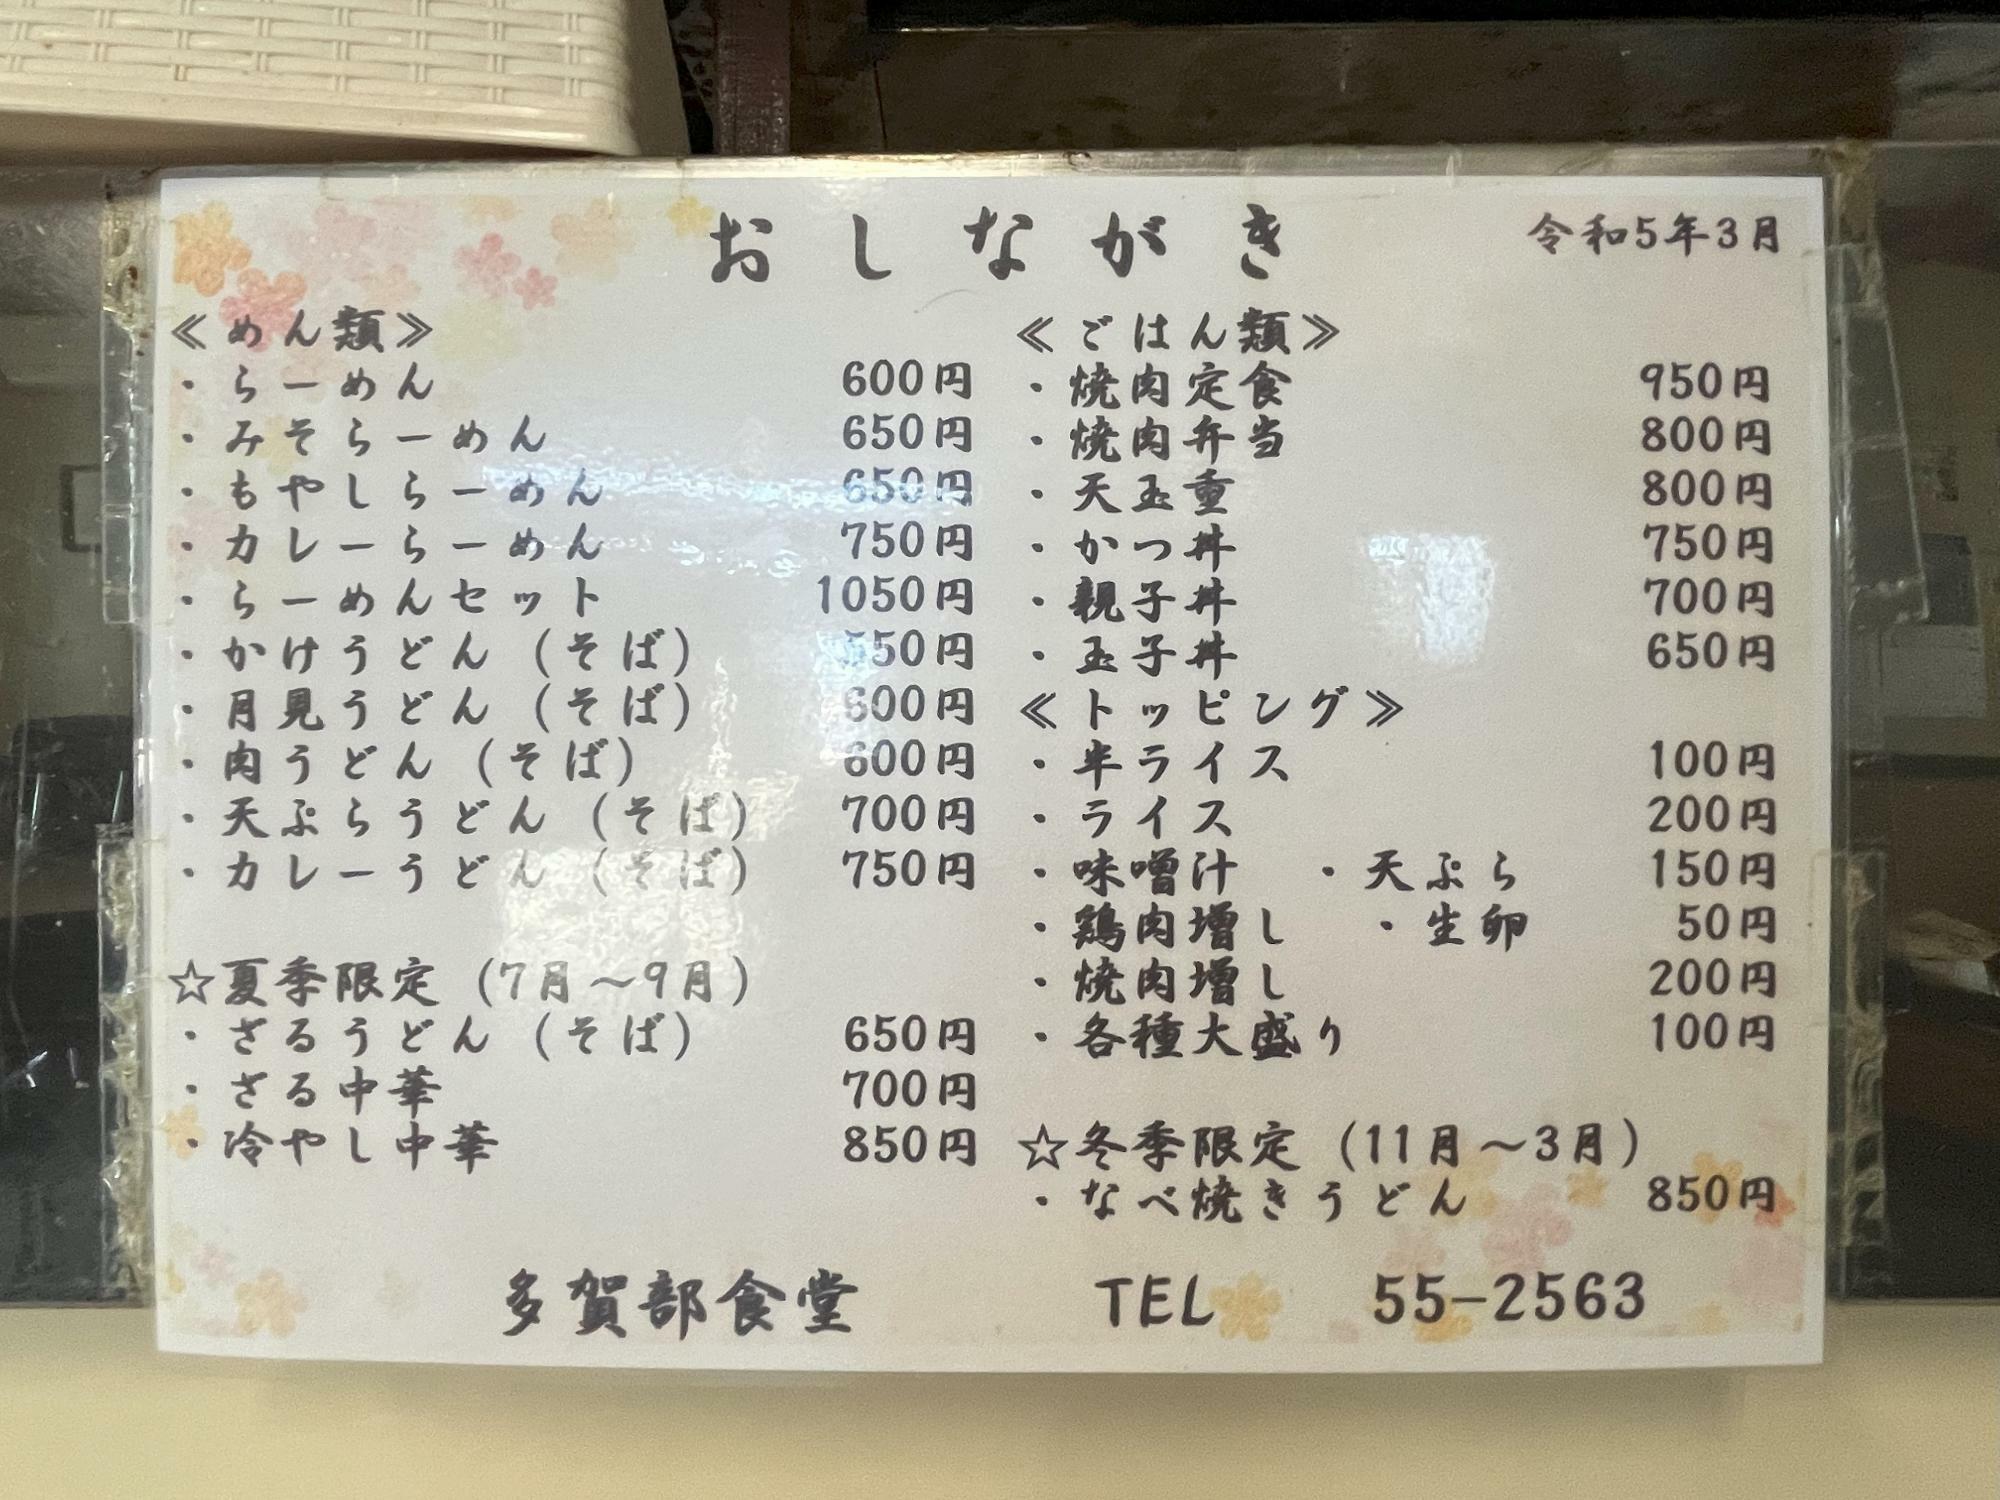 おしながき
令和5年3月
≪めん類≫
・らーめん 600円
・みそらーめん 650円
・もやしらーめん 650円
・カレーらーめん 750円
・らーめんセット 1050円
・かけうどん（そば） 550円
・月見うどん（そば） 600円
・肉うどん（そば） 600円
・天ぷらうどん（そば） 700円
・カレーうどん（そば） 750円
☆夏季限定（7月～9月）
・ざるうどん（そば） 650円
・ざる中華 700円
・冷やし中華 850円
≪ごはん類≫
・焼肉定食 950円
・焼肉弁当 800円
・天玉重 800円
・かつ丼 750円
・親子丼 700円
・玉子丼 650円
≪トッピング≫
・半ライス 100円
・ライス 200円
・味噌汁 ・天ぷら 150円
・鶏肉増し ・生卵 50円
・焼肉増し 200円
・各種大盛り 100円
☆冬季限定（11月～3月）
・なべ焼きうどん 850円
多賀部食堂 TEL 55-2563